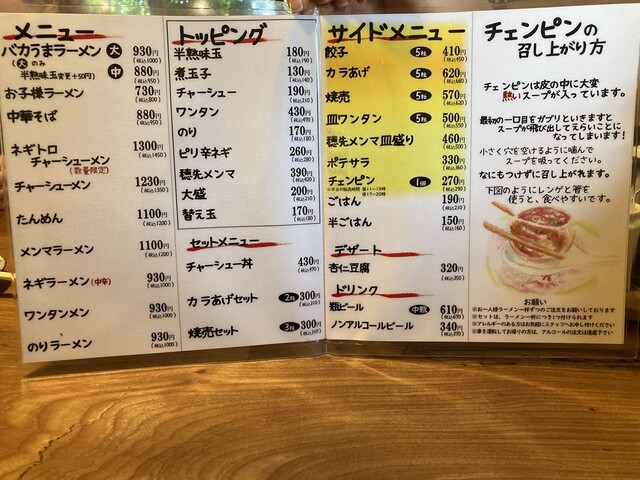 メニュー
バカうまラーメン 大 930円
(税込1000)
(大のみ
半熟味玉変更+50円) 中 880円
(税込950)
お子様ラーメン 730円
(税込800)
中華そば 880円
(税込950)
ネギトロ
チャーシューメン 1300円
(税込1450)
(数量限定)
チャーシューメン 1230円
(税込1350)
たんめん 1100円
(税込1200)
メンマラーメン 1100円
(税込1200)
ネギラーメン(中辛) 930円
(税込1000)
ワンタンメン 930円
(税込1000)
のりラーメン 930円
(税込1000)
トッピング
半熟味玉 180円
(税込190)
煮玉子 130円
(税込140)
チャーシュー 190円
(税込210)
ワンタン 430円
(税込470)
のり 170円
(税込180)
ピリ辛ネギ 260円
(税込280)
穂先メンマ 390円
(税込420)
大盛 200円
(税込210)
替え玉 170円
(税込180)
セットメニュー
チャーシュー丼 430円
(税込470)
カラあげセット 2粒 300円
(税込310)
焼売セット 3粒 300円
(税込310)
サイドメニュー
餃子 5粒 410円
(税込450)
カラあげ 5粒 620円
(税込680)
焼売 5粒 570円
(税込620)
皿ワンタン 5粒 500円
(税込550)
穂先メンマ皿盛り 460円
(税込500)
ポテサラ 330円
(税込360)
チェンピン 1個 270円
(税込290)
ごはん 190円
(税込210)
半ごはん 150円
(税込160)
デザート
杏仁豆腐 320円
(税込350)
ドリンク
瓶ビール 中瓶 610円
(税込670)
ノンアルコールビール 340円
(税込370)
チェンピンの
召し上がり方
チェンピンは皮の中に大変
熱いスープが入っています。
最初の一口目をガブリといきますと
スープが飛び出してえらいことに
なってしまいます!
小さく穴を空けるように噛んで
スープを吸ってください。
なにもつけずに召し上がれます。
下図のようにレンゲと箸を
使うと、食べやすいです。
お願い
※お一人様ラーメン一杯ずつのご注文をお願いしております
※セットは、ラーメン一杯につき1つ付けられます
※アレルギーのある方はお気軽にスタッフへお申し付けください
※車を運転してお帰りの方は、アルコールの注文は遠慮下さい